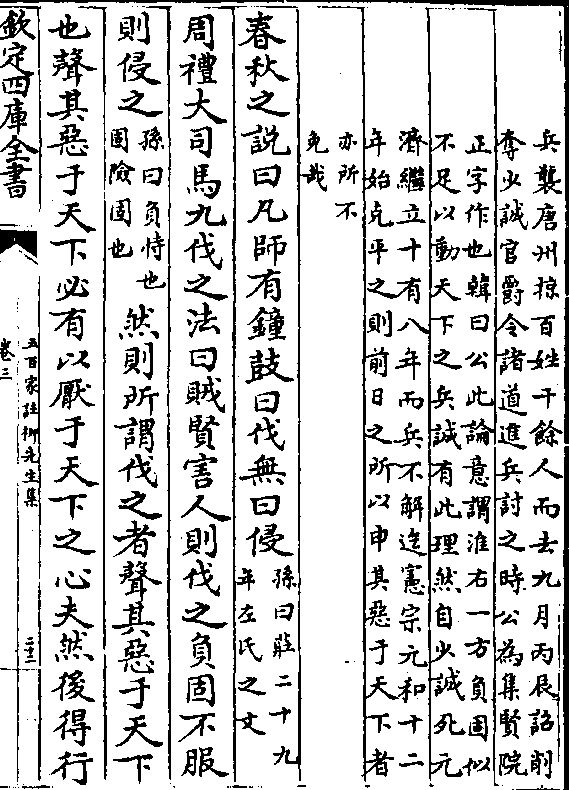 兵襲唐州掠百姓千餘人而去九月丙辰詔削
奪少誠官爵令諸道進兵討之時公為集賢院
正字作也韓曰公此論意謂淮右一方負固似
不足以動天下之兵誠有此理然自少誠死元
濟繼立十有八年而兵不解迄憲宗元和十二
年始克平之則前日之所以申其惡于天下者
亦所不
免哉
春秋之說曰凡師有鐘鼓曰伐無曰侵孫曰莊二十九
年左氏之文
周禮大司馬九伐之法曰賊賢害人則伐之負固不服
則侵之孫曰負恃也
固險固也然則所謂伐之者聲其惡于天下
也聲其惡于天下必有以厭于天下之心夫然後得行
欽定四庫全書
五百家註柳先生集
卷三
二十三